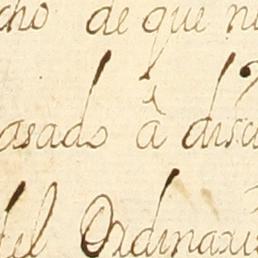 cho de que n
asado à discu
del Ordinari